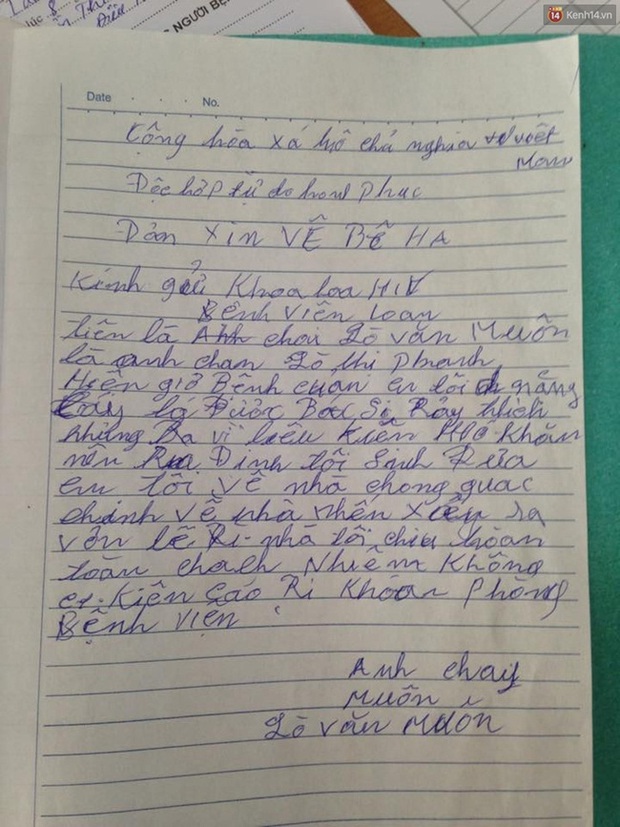 14 Kenh14.vn
NGƯỜI BỆ
lúc 8
Date . . . No.
Cộng hòa xá hộ chủ nghĩa việt
Nam
Độc lập tự do hanh Phuc
Dản XIN VỄ BỄ HA
Kính gửi Khoa loa HIV
Bênh Viên loan
liên là Anh chai Lò văn Muôn
là anh chan Lò thi Phanh
Hiên giờ Bênh cuản en tôi giảng
lá Được Bác Si Rảy thich
nhưng Ba vì liêu Kiên Khó Khăn
nên Rua Đinh tôi Sinh Đưa
em tôi về nhã chong guac
chinh Về nhà nhến xiểy ra
vởn lễ Ri-nhà tôi chiu hoan
toăn chach Nhiễm Không
er. Kiên Cáo Ri Khoan Phong
Bệnh Viện
Anh chay
Muôn
Lò văn Muôn